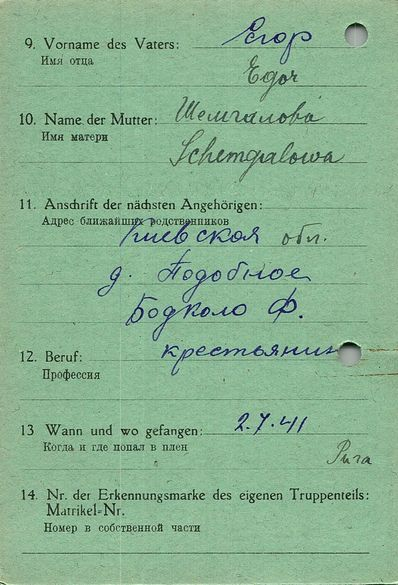 9. Vorname des Vaters: Егор
Имя отца
Egor
10. Name der Mutter: Шемгалова
Имя матери
Schemgalowa
11. Anschrift der nächsten Angehörigen:
Адрес ближайших родственников
Киевская обл.
д. Подобное
Бодколо Ф.
12. Beruf: крестьянин
Профессия
13 Wann und wo gefangen: 2.7.41
Когда и где попал в плен
Рига
14. Nr. der Erkennungsmarke des eigenen Truppenteils:
Matrikel-Nr.
Номер в собственной части